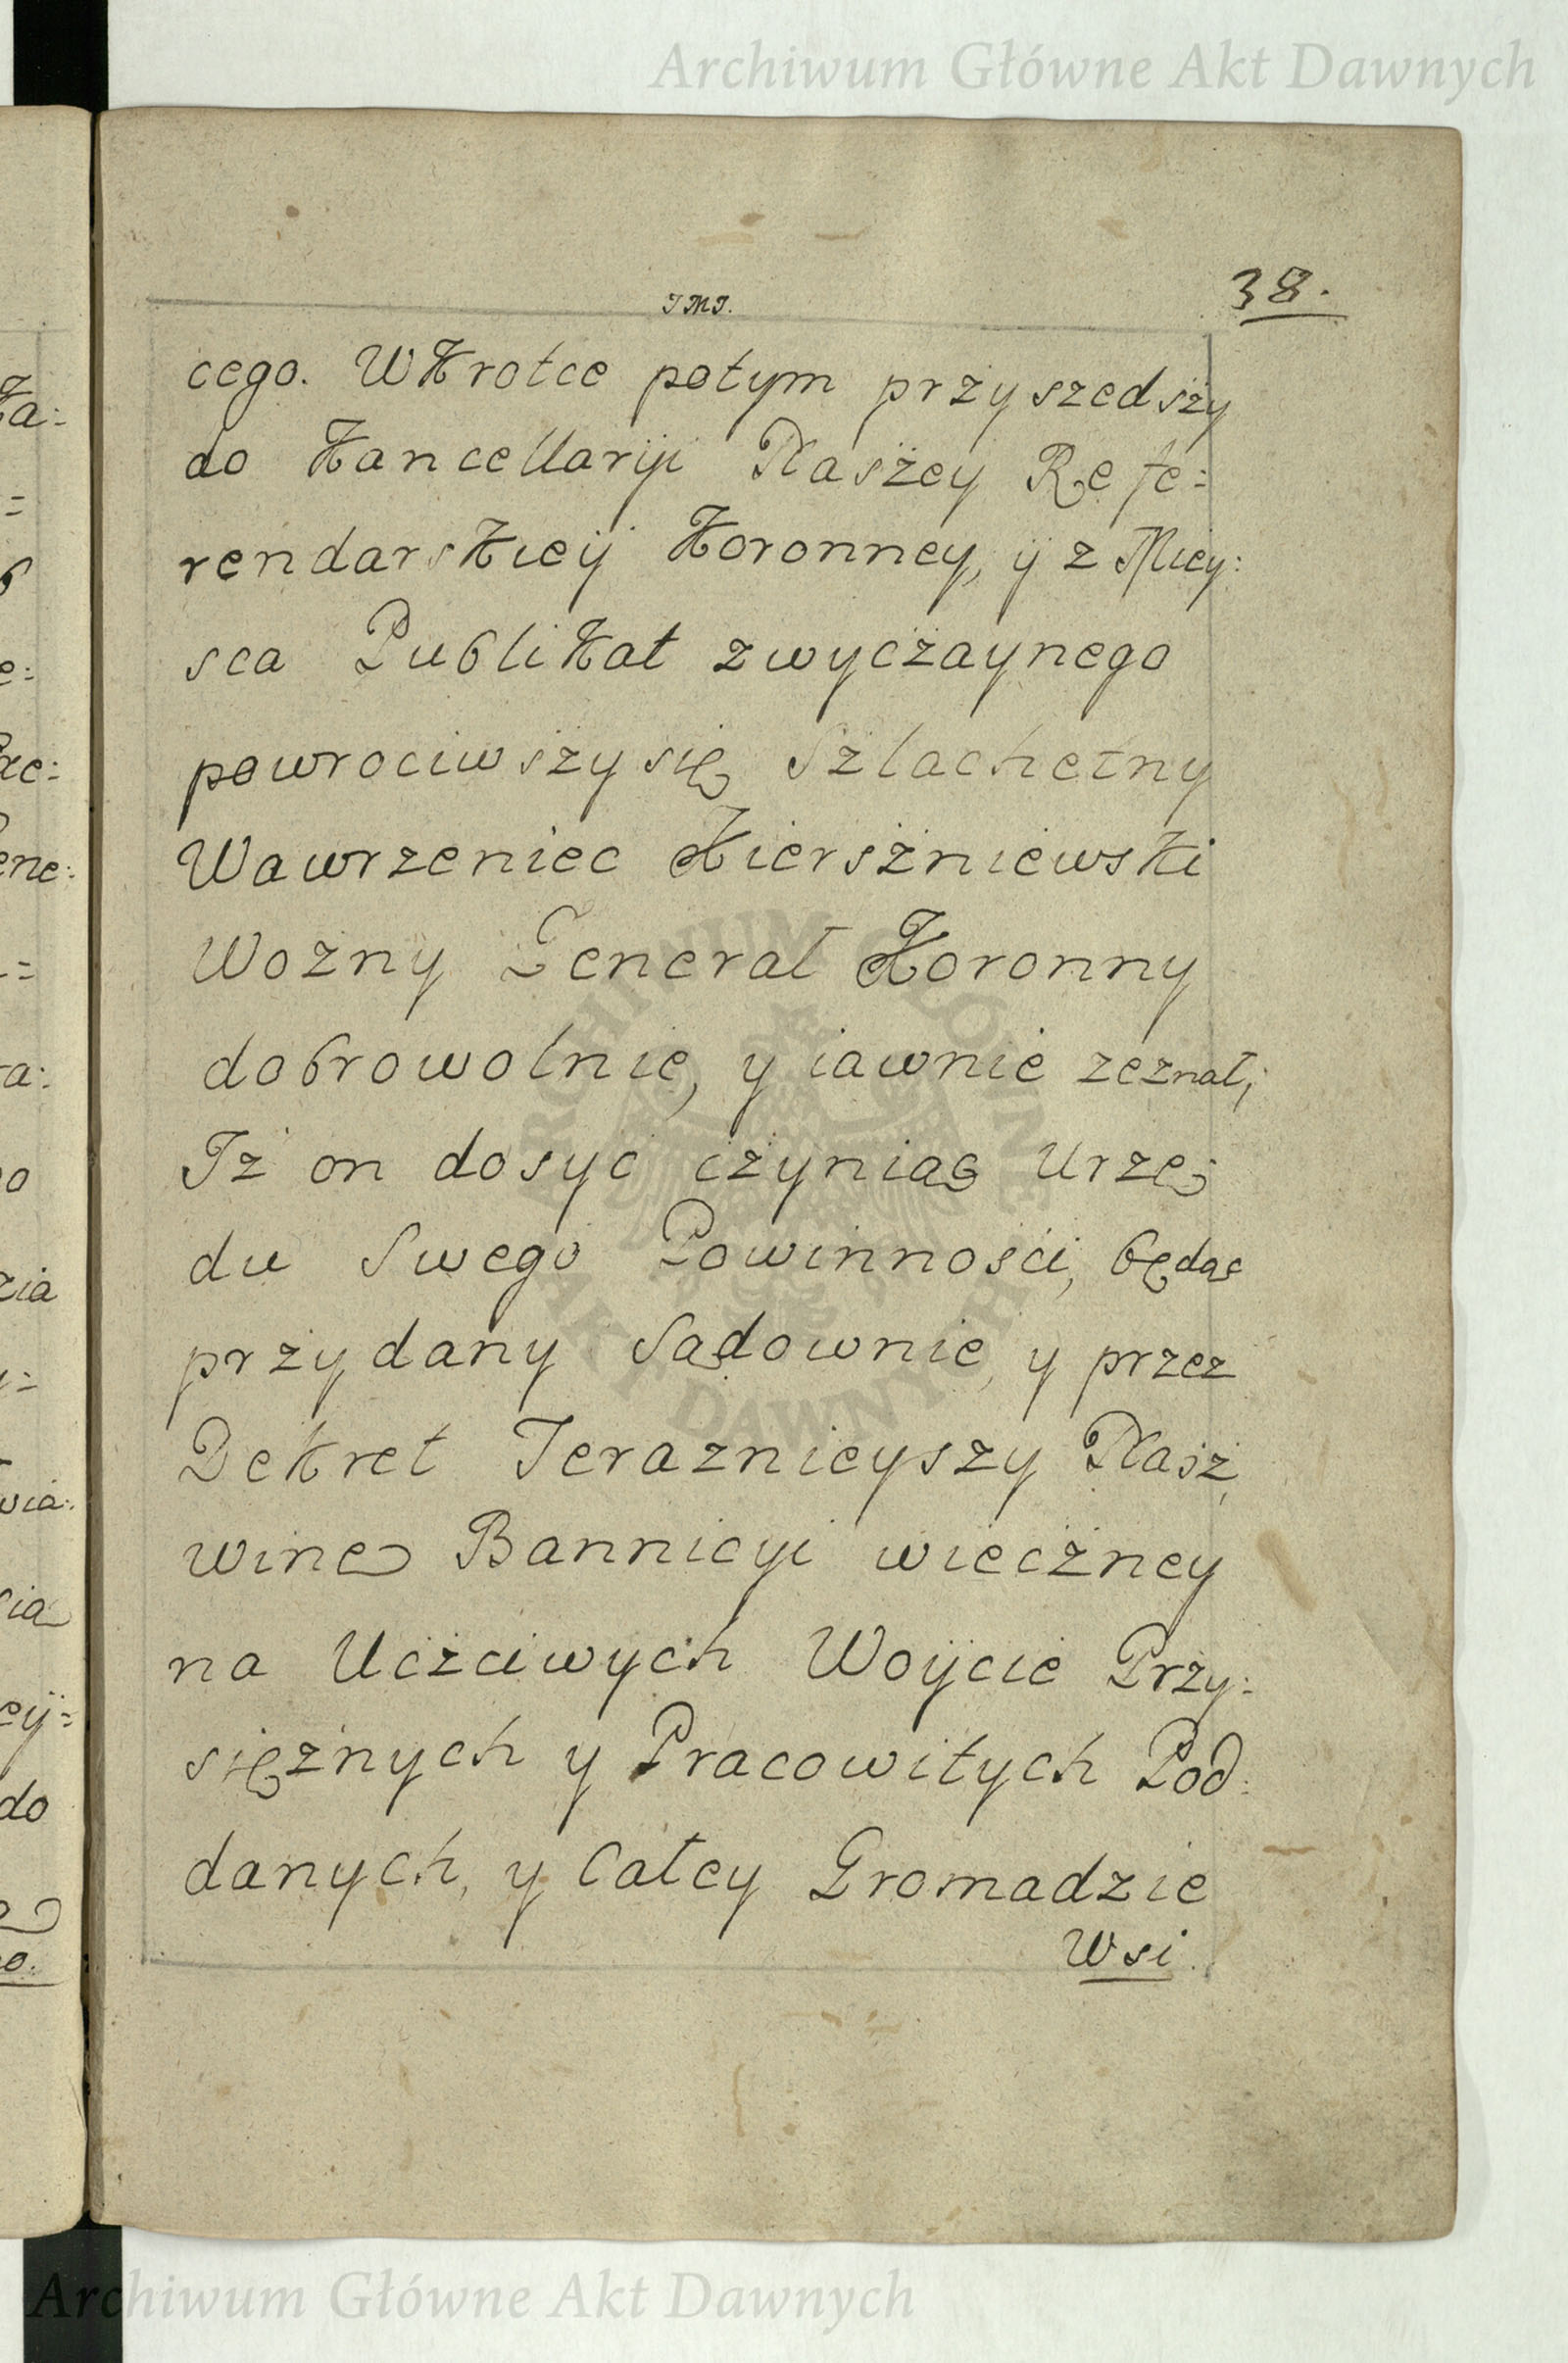 Archiwum Główne Akt Dawnych
38.
JMJ.
cego. WKrotce potym przyszedszy
do Kancellaryi Naszey Refe:
rendarskieÿ Koronney, ÿ z Miey:
sca Publikat zwyczaynego
powrociwszy się Szlachetny
Wawrzeniec Kierszniewski
Wozny Generał Koronny
dobrowolnie, y iawnie zeznał;
Iż on dosyć czyniąc Urzę:
du Swego Powinności, będąc
przydany Sądownie, y przez
Dekret Teraznieyszy Nasz,
winę Bannicyi wieczney
na Uczciwych Woÿcie Przy:
siężnych y Pracowitych Pod:
danych, y Całey Gromadzie
Wsi
ARCHIWUM GŁÓWNE AKT DAWNYCH
Archiwum Główne Akt Dawnych